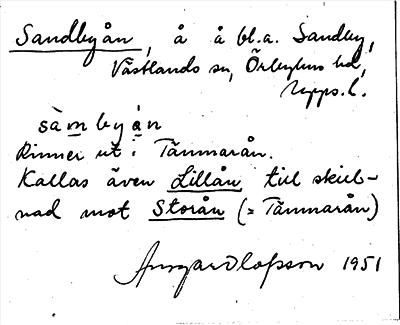 Sandbyån, å å bl.a. Sandby,
Västlands sn, Örbyhus hd,
Upps. l.
sàmbyán
Rinner ut i Tämnarån.
Kallas även Lillån till skill-
nad mot Storån (= Tämnarån)
Ansgar Olofsson 1951